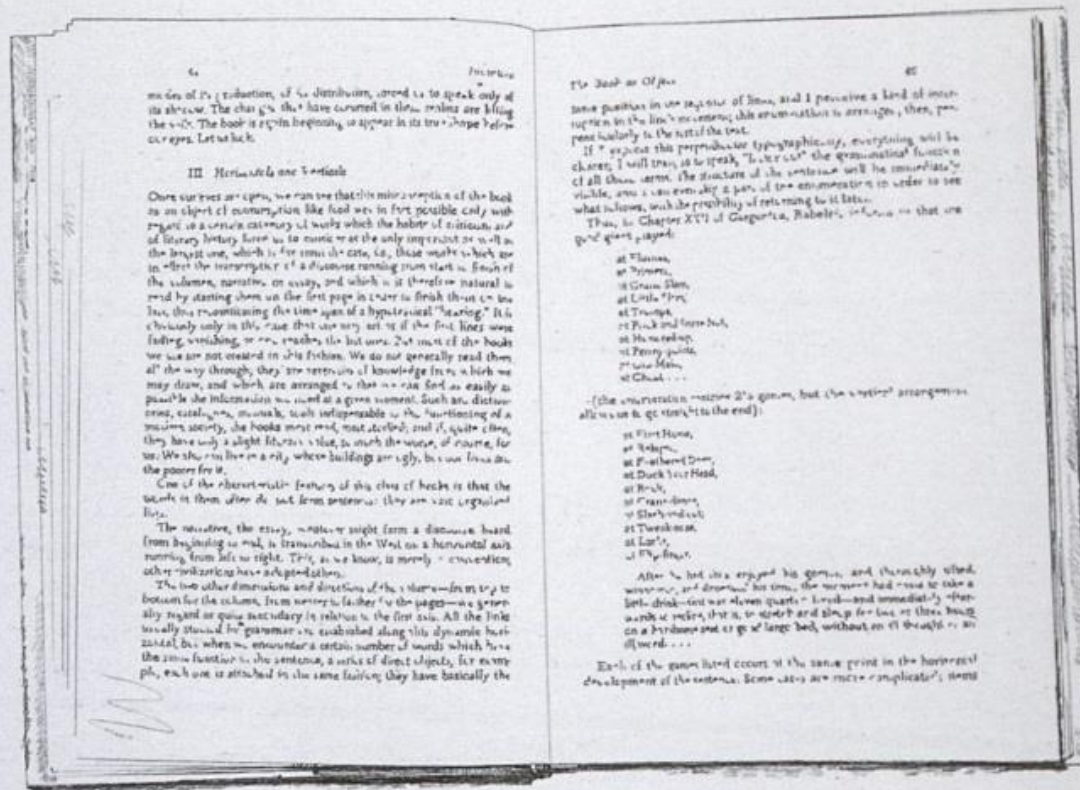 of its production, of its distribution, to speak only of
its shadow. The changes that have occurred in these realms are lifting
the veil. The book is again beginning to appear in its true shape before
our eyes. Let us look.
III Horizontals and Verticals
Once our eyes are open, we can see that this of the book
as an object of consumption like food was in fact possible only with
regard to a certain category of works which the habits of criticism and
of literary history force us to consider as the only important as well as
the largest one, which is far from the case, i.e., those works which are
in effect the transcription of a discourse running from start to finish of
the volumes, narrative or essay, and which it is therefore natural to
read by starting them on the first page in order to finish them on the
last, thus the time span of a hypothetical "hearing." It is
obviously only in this case that one may act as if the first lines were
fading, vanishing, as one reaches the last ones. But most of the books
we use are not created in this fashion. We do not generally read them
all the way through; they are reservoirs of knowledge from which we
may draw, and which are arranged so that we can find as easily as
possible the information we need at a given moment. Such are diction-
aries, catalogues, manuals, tools indispensable to the functioning of a
modern society, the books most read, most studied; and if, quite often,
they have only a slight literary value, so much the worse, of course, for
us. We can live in a city whose buildings are ugly, but our lives are
the poorer for it.
One of the characteristic features of this class of books is that the
words in them often do not form sentences: they are vast organized
lists.
The narrative, the essay, might form a discourse heard
from beginning to end, is transcribed in the West on a horizontal axis
running from left to right. This, as we know, is merely a convention;
other civilizations have adopted others.
The two other dimensions and directions of the volume—from top to
bottom for the column, from nearer to farther for the pages—we gener-
ally regard as quite secondary in relation to the first axis. All the links
usually studied by grammar are established along this dynamic hori-
zontal, but when we encounter a certain number of words which have
the same function in the sentence, a series of direct objects, for exam-
ple, each one is attached in the same fashion; they have basically the
The Book as Object
65
same position in the of lines, and I perceive a kind of inter-
ruption in the line's movement; this enumeration is arranged, then, per-
pendicularly to the rest of the text.
If I express this perpendicular typographically, everything will be
clearer, I will then, so to speak, the grammatical function
of all these terms. The structure of the sentence will be immediately
visible, and I can even skip a part of the enumeration in order to see
what follows, with the possibility of returning to it later.
Thus, in Chapter XVI of Gargantua, Rabelais informs us that
giant played:
at Flushes,
at Primero,
at Grand Slam,
at Little
at Trumps,
at Prick and Spare Not,
at
at Penny
at
at Cheat . . .
(the enumeration games, but the vertical arrangement
allows us to go straight to the end):
at Flirt Home,
at
at Feathered
at Duck Your Head,
at
at
at
at Tweak-nose,
at Larks,
at
After he had thus enjoyed his games, and thoroughly sifted,
winnowed, and his time, the had to take a
little drink—that was eleven quarts a head—and immediately after-
wards to that is, to stretch and sleep for two or three hours
on a handsome large bed, without an ill thought or an
ill word. . . .
Each of the games listed occurs at the same point in the horizontal
development of the sentence. Some cases are more complicated; items